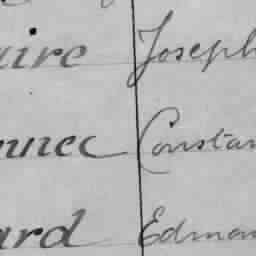 aire Joseph
nnec Constan
ard Edmon